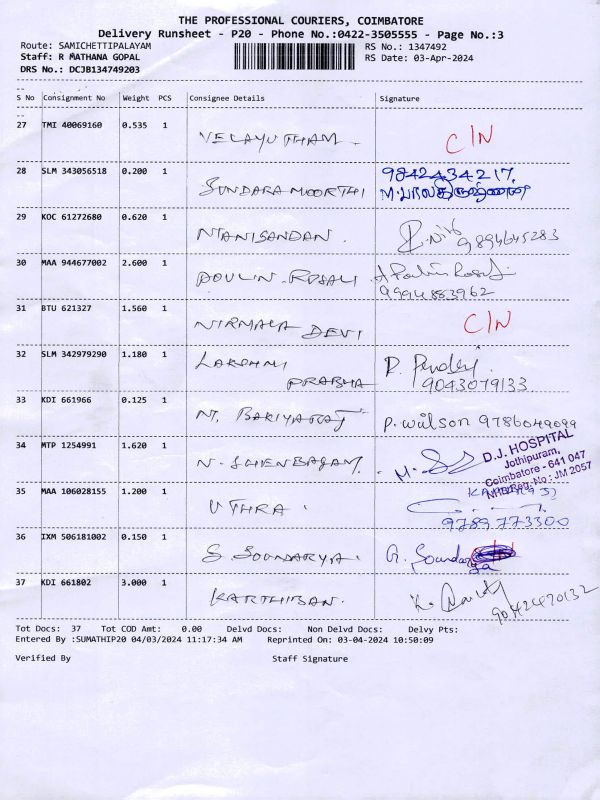 THE PROFESSIONAL COURIERS, COIMBATORE
Delivery Runsheet - P20 - Phone No.:0422-3505555 - Page No.:3
Route: SAMICHETTIPALAYAM RS No.: 1347492
Staff: R MATHANA GOPAL RS Date: 03-Apr-2024
DRS No.: DCJB134749203
S No Consignment No Weight PCS Consignee Details Signature
27 TMI 40069160 0.535 1 VELAYUTHAM. C/N
28 SLM 343056518 0.200 1 SUNDARA MOORTHI 9842434217.
29 KOC 61272680 0.620 1 9894645283
30 MAA 944677002 2.600 1 DOULIN. ROSALI
9994883962
31 BTU 621327 1.560 1 NIRMALA DEVI C/N
32 SLM 342979290 1.180 1 LAKSHMI
PRABHA 9043079133.
33 KDI 661966 0.125 1 P. Wilson 9786049099
34 MTP 1254991 1.620 1 N. SHENBAGAM.
D.J. HOSPITAL
Jothipuram,
Coimbatore - 641 047
Reg. No : JM 2057
35 MAA 106028155 1.200 1 UTHRA.
9789773300
36 IXM 506181002 0.150 1 S. SOUNDARYA.
37 KDI 661802 3.000 1 KARTHIBAN.
Tot Docs: 37 Tot COD Amt: 0.00 Delvd Docs: Non Delvd Docs: Delvy Pts:
Entered By :SUMATHIP20 04/03/2024 11:17:34 AM Reprinted On: 03-04-2024 10:50:09
Verified By Staff Signature